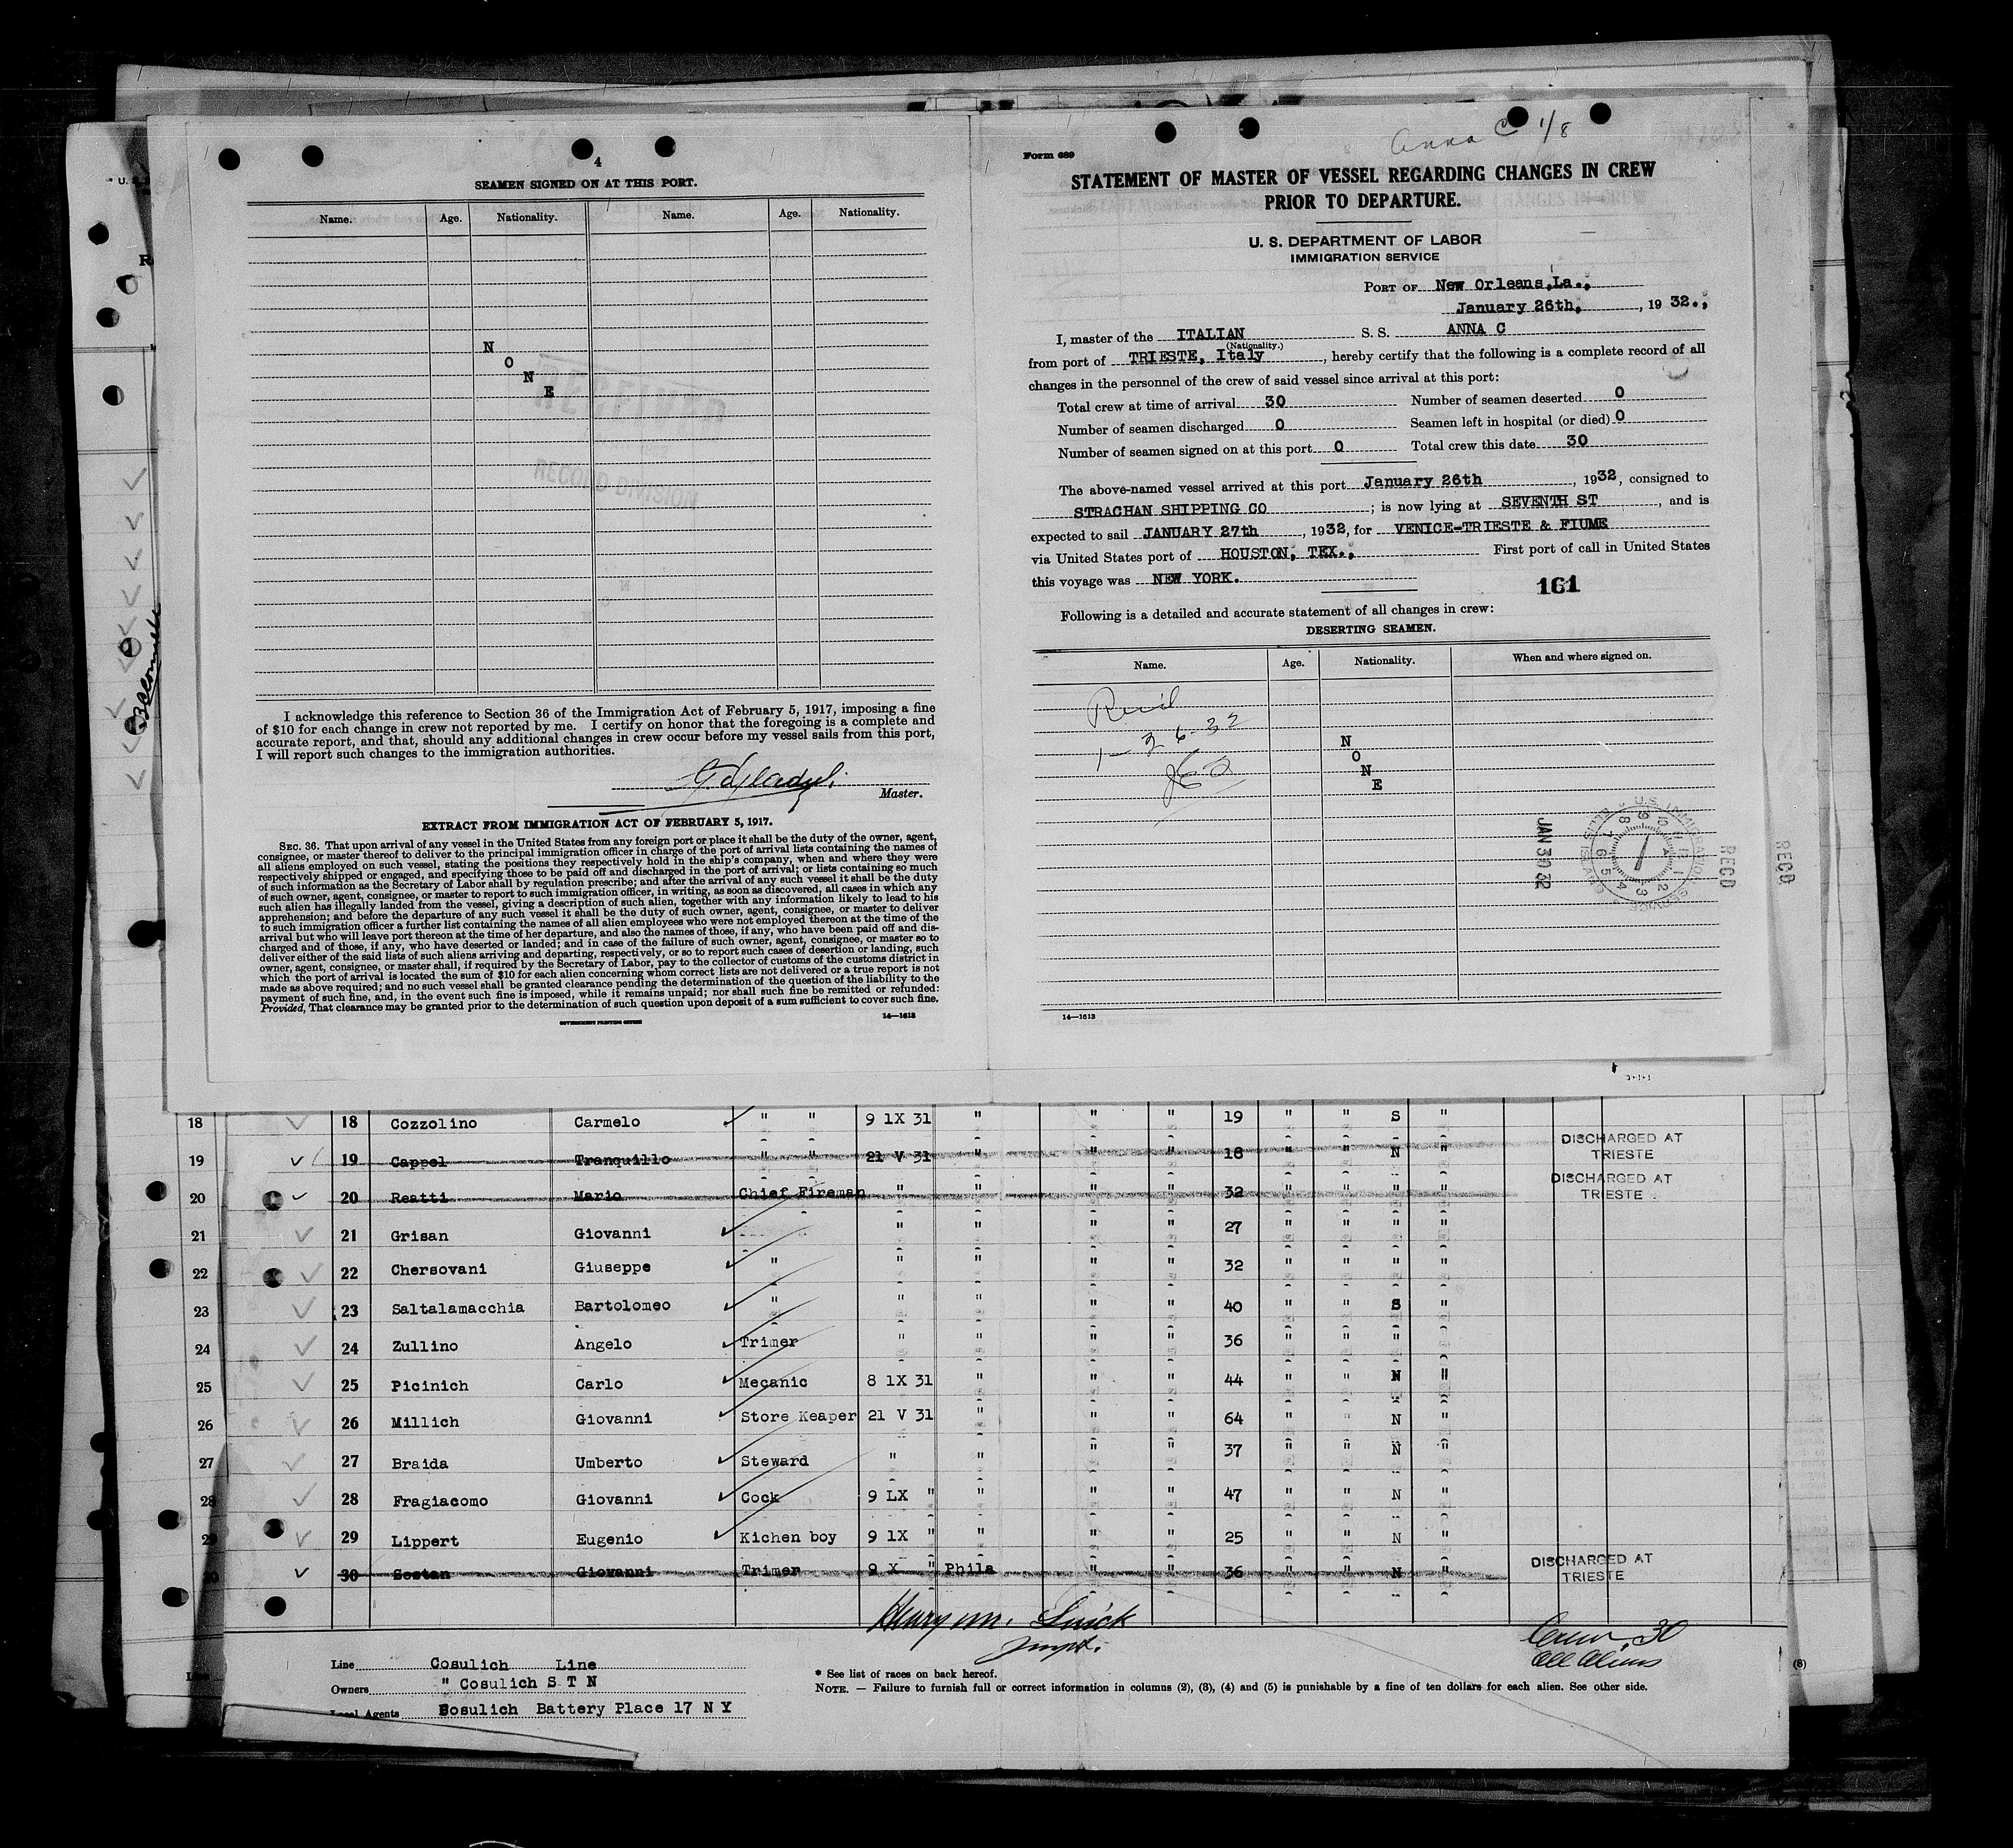 4
SEAMEN SIGNED ON AT THIS PORT.
Name. Age. Nationality. Name. Age. Nationality.
N
O
N
E
RECEIVED
RECORD DIVISION
I acknowledge this reference to Section 36 of the Immigration Act of February 5, 1917, imposing a fine
of $10 for each change in crew not reported by me. I certify on honor that the foregoing is a complete and
accurate report, and that, should any additional changes in crew occur before my vessel sails from this port,
I will report such changes to the immigration authorities.
Master.
EXTRACT FROM IMMIGRATION ACT OF FEBRUARY 5, 1917.
SEC. 36. That upon arrival of any vessel in the United States from any foreign port or place it shall be the duty of the owner, agent,
consignee, or master thereof to deliver to the principal immigration officer in charge of the port of arrival lists containing the names of
all aliens employed on such vessel, stating the positions they respectively hold in the ship's company, when and where they were
respectively shipped or engaged, and specifying those to be paid off and discharged in the port of arrival; or lists containing so much
of such information as the Secretary of Labor shall by regulation prescribe; and after the arrival of any such vessel it shall be the duty
of such owner, agent, consignee, or master to report to such immigration officer, in writing, as soon as discovered, all cases in which any
such alien has illegally landed from the vessel, giving a description of such alien, together with any information likely to lead to his
apprehension; and before the departure of any such vessel it shall be the duty of such owner, agent, consignee, or master to deliver
to such immigration officer a further list containing the names of all alien employees who were not employed thereon at the time of the
arrival but who will leave port thereon at the time of her departure, and also the names of those, if any, who have been paid off and dis-
charged and of those, if any, who have deserted or landed; and in case of the failure of such owner, agent, consignee, or master so to
deliver either of the said lists of such aliens arriving and departing, respectively, or so to report such cases of desertion or landing, such
owner, agent, consignee, or master shall, if required by the Secretary of Labor, pay to the collector of customs of the customs district in
which the port of arrival is located the sum of $10 for each alien concerning whom correct lists are not delivered or a true report is not
made as above required; and no such vessel shall be granted clearance pending the determination of the question of the liability to the
payment of such fine, and, in the event such fine is imposed, while it remains unpaid; nor shall such fine be remitted or refunded:
Provided, That clearance may be granted prior to the determination of such question upon deposit of a sum sufficient to cover such fine.
GOVERNMENT PRINTING OFFICE
14—1613
Anna C 1/8
Form 689
STATEMENT OF MASTER OF VESSEL REGARDING CHANGES IN CREW
PRIOR TO DEPARTURE.
U. S. DEPARTMENT OF LABOR
IMMIGRATION SERVICE
PORT OF New Orleans,La.,
January 26th, , 19 32.,
I, master of the ITALIAN S. S. ANNA C
(Nationality.)
from port of TRIESTE, Italy , hereby certify that the following is a complete record of all
changes in the personnel of the crew of said vessel since arrival at this port:
Total crew at time of arrival 30 Number of seamen deserted 0
Number of seamen discharged 0 Seamen left in hospital (or died) 0
Number of seamen signed on at this port 0 Total crew this date 30
The above-named vessel arrived at this port January 26th , 1932, consigned to
STRACHAN SHIPPING CO ; is now lying at SEVENTH ST , and is
expected to sail JANUARY 27th , 1932, for VENICE-TRIESTE & FIUME
via United States port of HOUSTON, TEX., First port of call in United States
this voyage was NEW YORK.
161
Following is a detailed and accurate statement of all changes in crew:
DESERTING SEAMEN.
Name. Age. Nationality. When and where signed on.
1-26-32
N
O
N
E
JAN 30 32
U.S. IMMIGRATION SERVICE
RECD
RECD
14—1613
18 18 Cozzolino Carmelo " " 9 1X 31 " " " 19 " " S "
19 19 Cappel Tranquillo " " 21 V 31 " " " 18 " " N " DISCHARGED AT TRIESTE
20 20 Reatti Mario Chief Fireman " " " " 32 " " " " DISCHARGED AT TRIESTE
21 21 Grisan Giovanni " " " " 27 " " " "
22 22 Chersovani Giuseppe " " " " " 32 " " " "
23 23 Saltalamacchia Bartolomeo " " " " " 40 " " S "
24 24 Zullino Angelo Trimer " " " " 36 " " " "
25 25 Picinich Carlo Mecanic 8 1X 31 " " " 44 " " N "
26 26 Millich Giovanni Store Keaper 21 V 31 " " " 64 " " N "
27 27 Braida Umberto Steward " " " " 37 " " N "
28 28 Fragiacomo Giovanni Cock 9 LX " " " " 47 " " N "
29 29 Lippert Eugenio Kichen boy 9 1X " " " " 25 " " N "
30 Sestan Giovanni Trimer 9 X " Phila " " 36 " " N " DISCHARGED AT TRIESTE
Crew, 30
All Aliens
Line Cosulich Line
Owners " Cosulich S T N
Local Agents Cosulich Battery Place 17 N Y
* See list of races on back hereof.
NOTE. — Failure to furnish full or correct information in columns (2), (3), (4) and (5) is punishable by a fine of ten dollars for each alien. See other side.
(8)